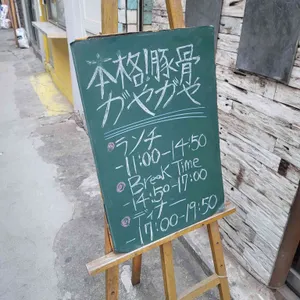 本格!豚骨
がやがや
ランチ
-11:00-14:50
Break Time
-14:50-17:00
ディナー
-17:00-19:50